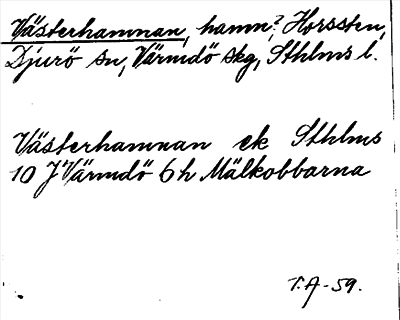 Västerhamnan, hamn?, Horssten,
Djurö sn, Värmdö skg, Sthlms l.
Västerhamnan ek Sthlms
10 J Värmdö 6 h Mälkobbarna
T.A-59.